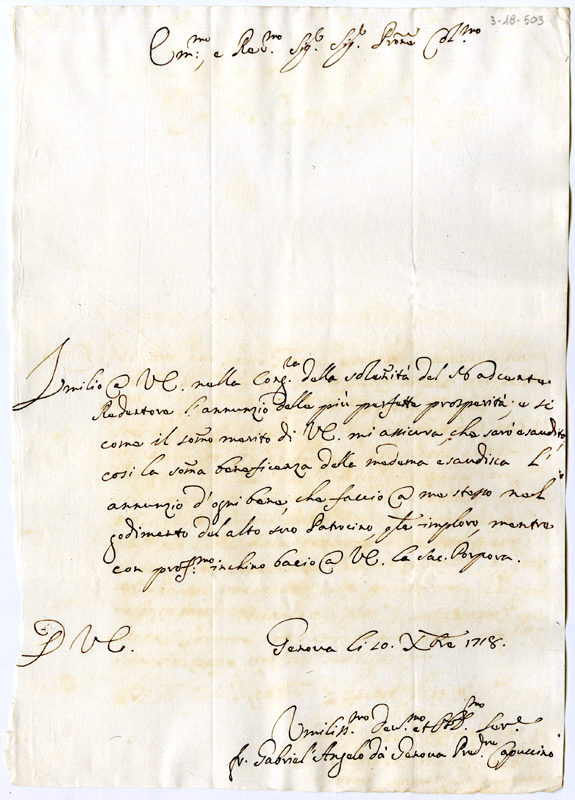 3-18-503
Em.mo, e Rev.mo Sig.r Sig.r Prōne Col.mo
Umilio @ VE. nella Cong.ra della solen̄ità del
Redentore l'annunzio delle più perfette prosperità; e si
come il som̄o merito di VE. mi assicura, che sarò esaudito,
così la som̄a beneficenza della medema esaudisca l'
annunzio d'ogni bene, che faccio @ me stesso nel
godimento del alto suo Patrocinio, che imploro, mentre
con prof.mo inchino bacio @ VE. la Sac. Porpora.
D VE.
Genova li 10. Xbre 1718.
Umiliss.mo Dev.mo et Obb.mo Ser.e
fr. Gabriel' Angelo da Genova Pred.re Capuccino